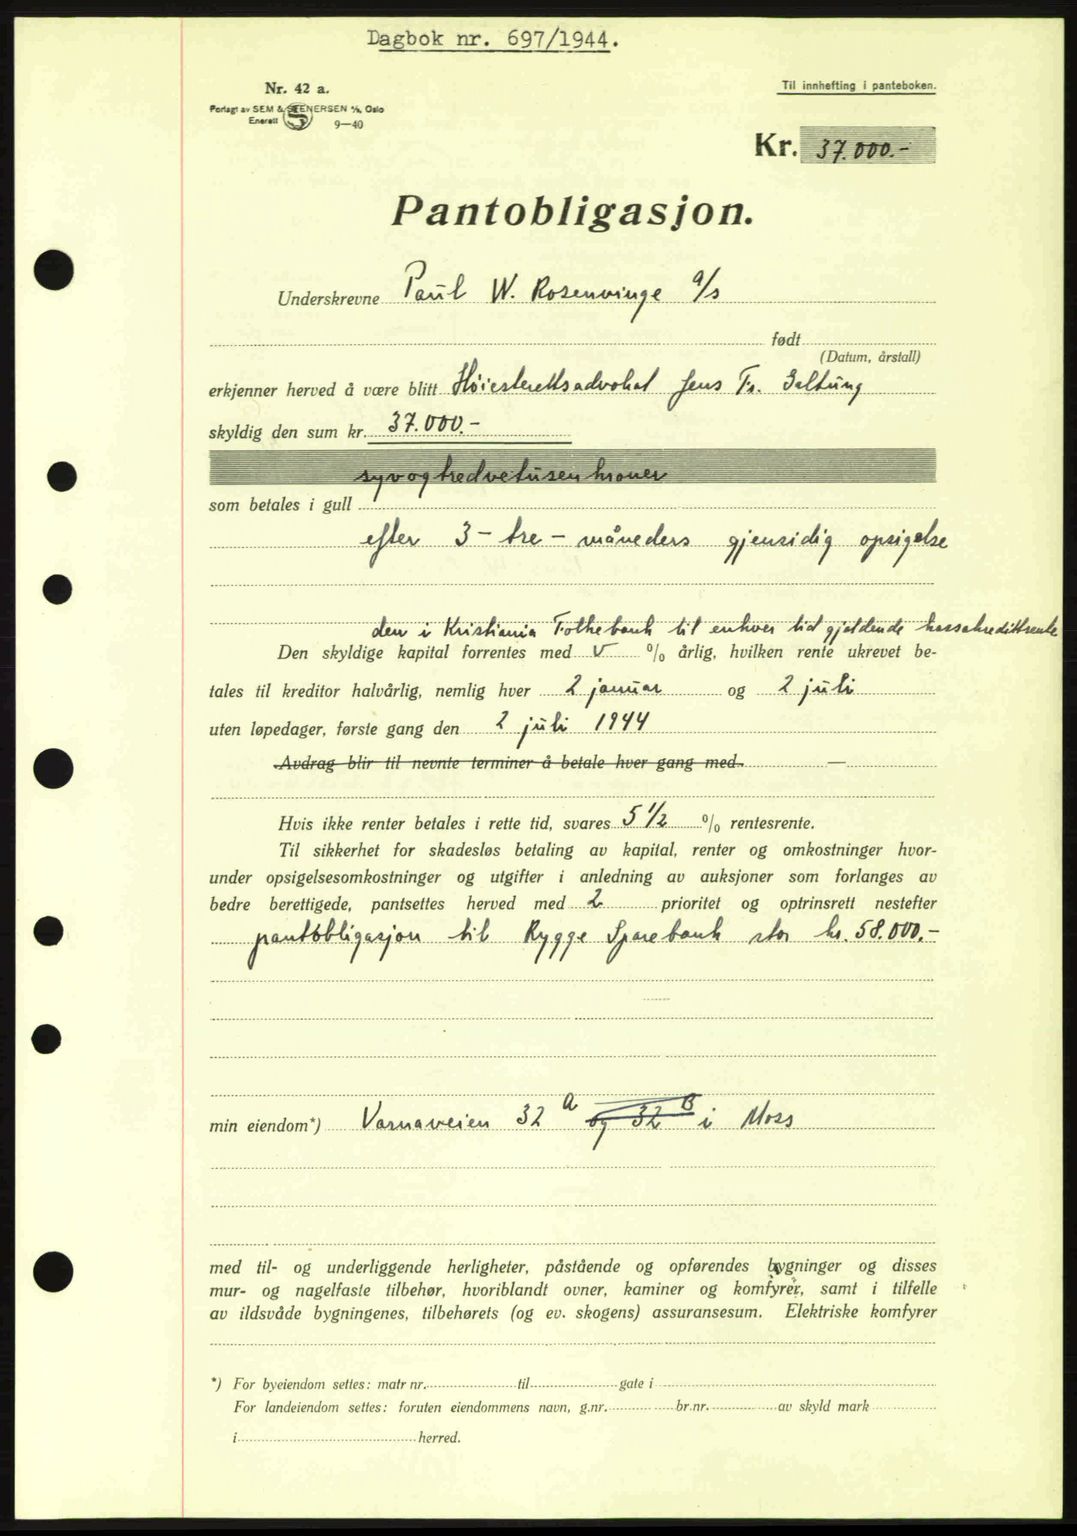 Dagbok nr. 697/1944.
Nr. 42 a.
Til innhefting i panteboken.
Forlagt av SEM & STENERSEN A/S, Oslo
Enerett 9—40
Kr. 37.000.-
Pantobligasjon.
Underskrevne Paul W. Rosenvinge a/s
født
(Datum, årstall)
erkjenner herved å være blitt Høiesterettsadvokat Jens Fr. Galtung
skyldig den sum kr. 37.000.-
syvogtredvetusen kroner
som betales i gull
efter 3 - tre - måneders gjensidig opsigelse
den i Kristiania Folkebank til enhver tid gjeldende kassakredittrente
Den skyldige kapital forrentes med v % årlig, hvilken rente ukrevet be-
tales til kreditor halvårlig, nemlig hver 2 januar og 2 juli
uten løpedager, første gang den 2 juli 1944
Avdrag blir til nevnte terminer å betale hver gang med. —
Hvis ikke renter betales i rette tid, svares 5 1/2 % rentesrente.
Til sikkerhet for skadesløs betaling av kapital, renter og omkostninger hvor-
under opsigelsesomkostninger og utgifter i anledning av auksjoner som forlanges av
bedre berettigede, pantsettes herved med 2 prioritet og optrinsrett nestefter
pantobligasjon til Rygge Sparebank stor kr. 58.000.-
min eiendom*) Varnaveien 32 A og 32 B i Moss
med til- og underliggende herligheter, påstående og opførendes bygninger og disses
mur- og nagelfaste tilbehør, hvoriblandt ovner, kaminer og komfyrer, samt i tilfelle
av ildsvåde bygningenes, tilbehørets (og ev. skogens) assuransesum. Elektriske komfyrer
*) For byeiendom settes: matr nr. til gate i
For landeiendom settes: foruten eiendommens navn, g.nr. br.nr. av skyld mark
i herred.